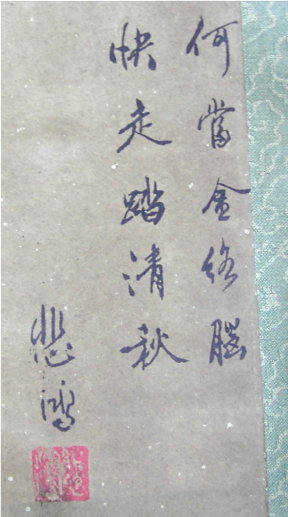 何當金絡腦
快走踏清秋
悲鴻